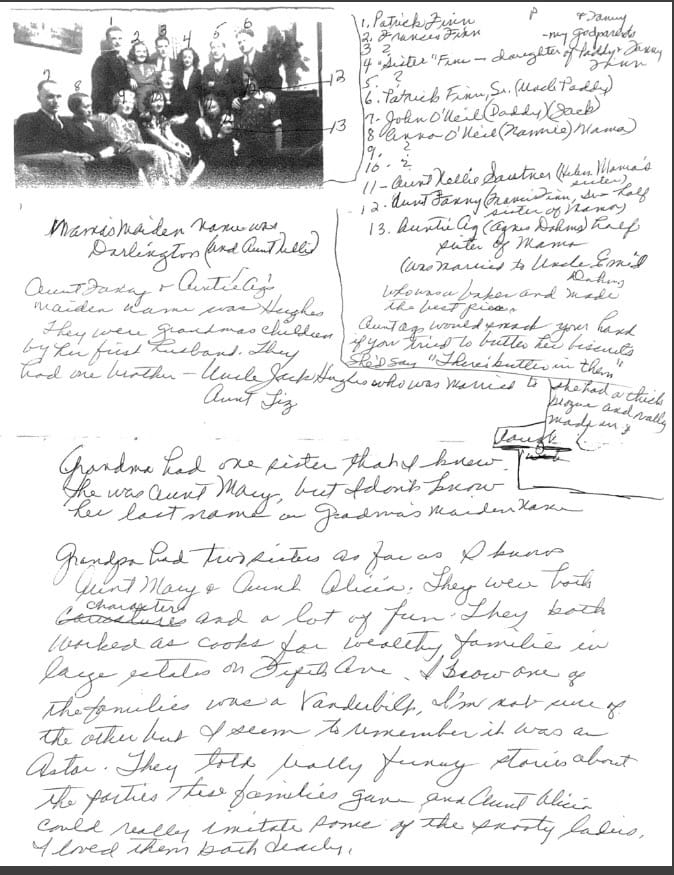 1 2 3 4 5 6
7 8 9
12
13
1. Patrick Finn
2. Frances Finn
P & Fanny
- my godparents
3 ?
4 "Sister" Finn - daughter of Paddy & Fanny Finn
5. ?
6. Patrick Finn, Sr. (Uncle Paddy)
7. John O'Neil (Daddy) (Jack)
8 Anna O'Neil (Nannie) Mama)
9. ?
10. ?
11 - Aunt Nellie (Helen Mama's sister)
12. Aunt Fanny (Francis Finn, Sr. - half sister of Mama)
13. Auntie Ag (Agnes Dahms) half
sister of Mama
(was married to Uncle Emil Dahms
who was a baker and made
the best pies.
Aunt Ag would smack your hand
if you tried to butter her biscuits
She'd say "There's butter in them"
Mama's Maiden name was
Darlington (and Aunt Nellie)
Aunt Fanny & Auntie Ag's
maiden name was Hughes
They were grandma's children
by her first husband. They
had one brother - Uncle Jack Hughes who was married to
Aunt Liz
she had a thick
brogue and really
made us
laugh
Grandma had one sister that I knew.
She was Aunt Mary, but I don't know
her last name or Gradma's Maiden Name
Grandpa had two sisters as far as I know
Aunt Mary & Aunt Alicia. They were both
characters
and a lot of fun. They both
worked as cooks for wealthy families in
large estates on Fifth Ave. I know one of
the families was a Vanderbilt, I'm not sure of
the other but I seem to remember it was an
Astor. They told really funny stories about
the parties these families gave and Aunt Alicia
could really imitate some of the snooty ladies.
I loved them both dearly.